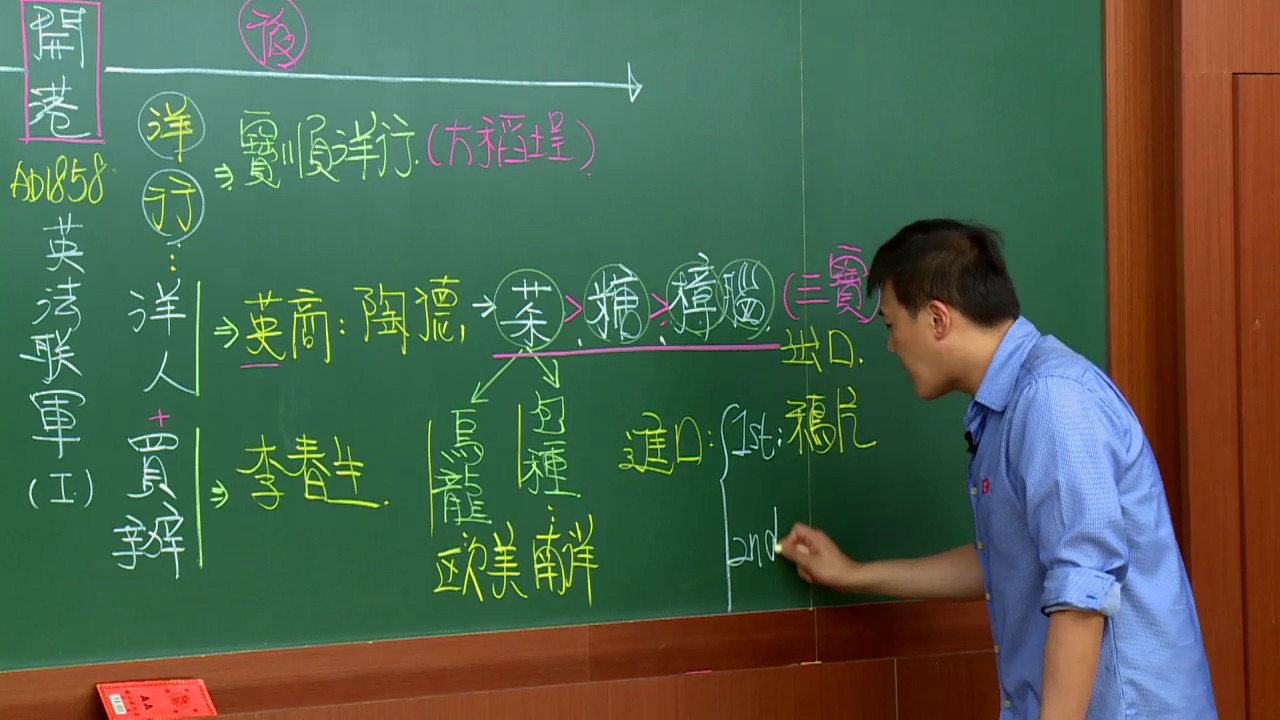 開港
後
AD1858
英法联軍(I)
洋行
⇒寶順洋行(大稻埕)
洋人+買辦
⇒英商:陶德→茶>糖>樟腦(三寶
出口
烏龍
包種
欧美南洋
⇒李春生
進口:
1st:鴉片
2nd
AA